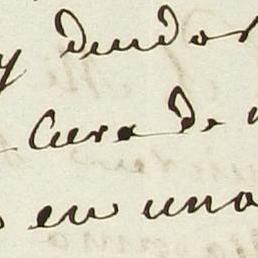 y dudos
cura de
en una